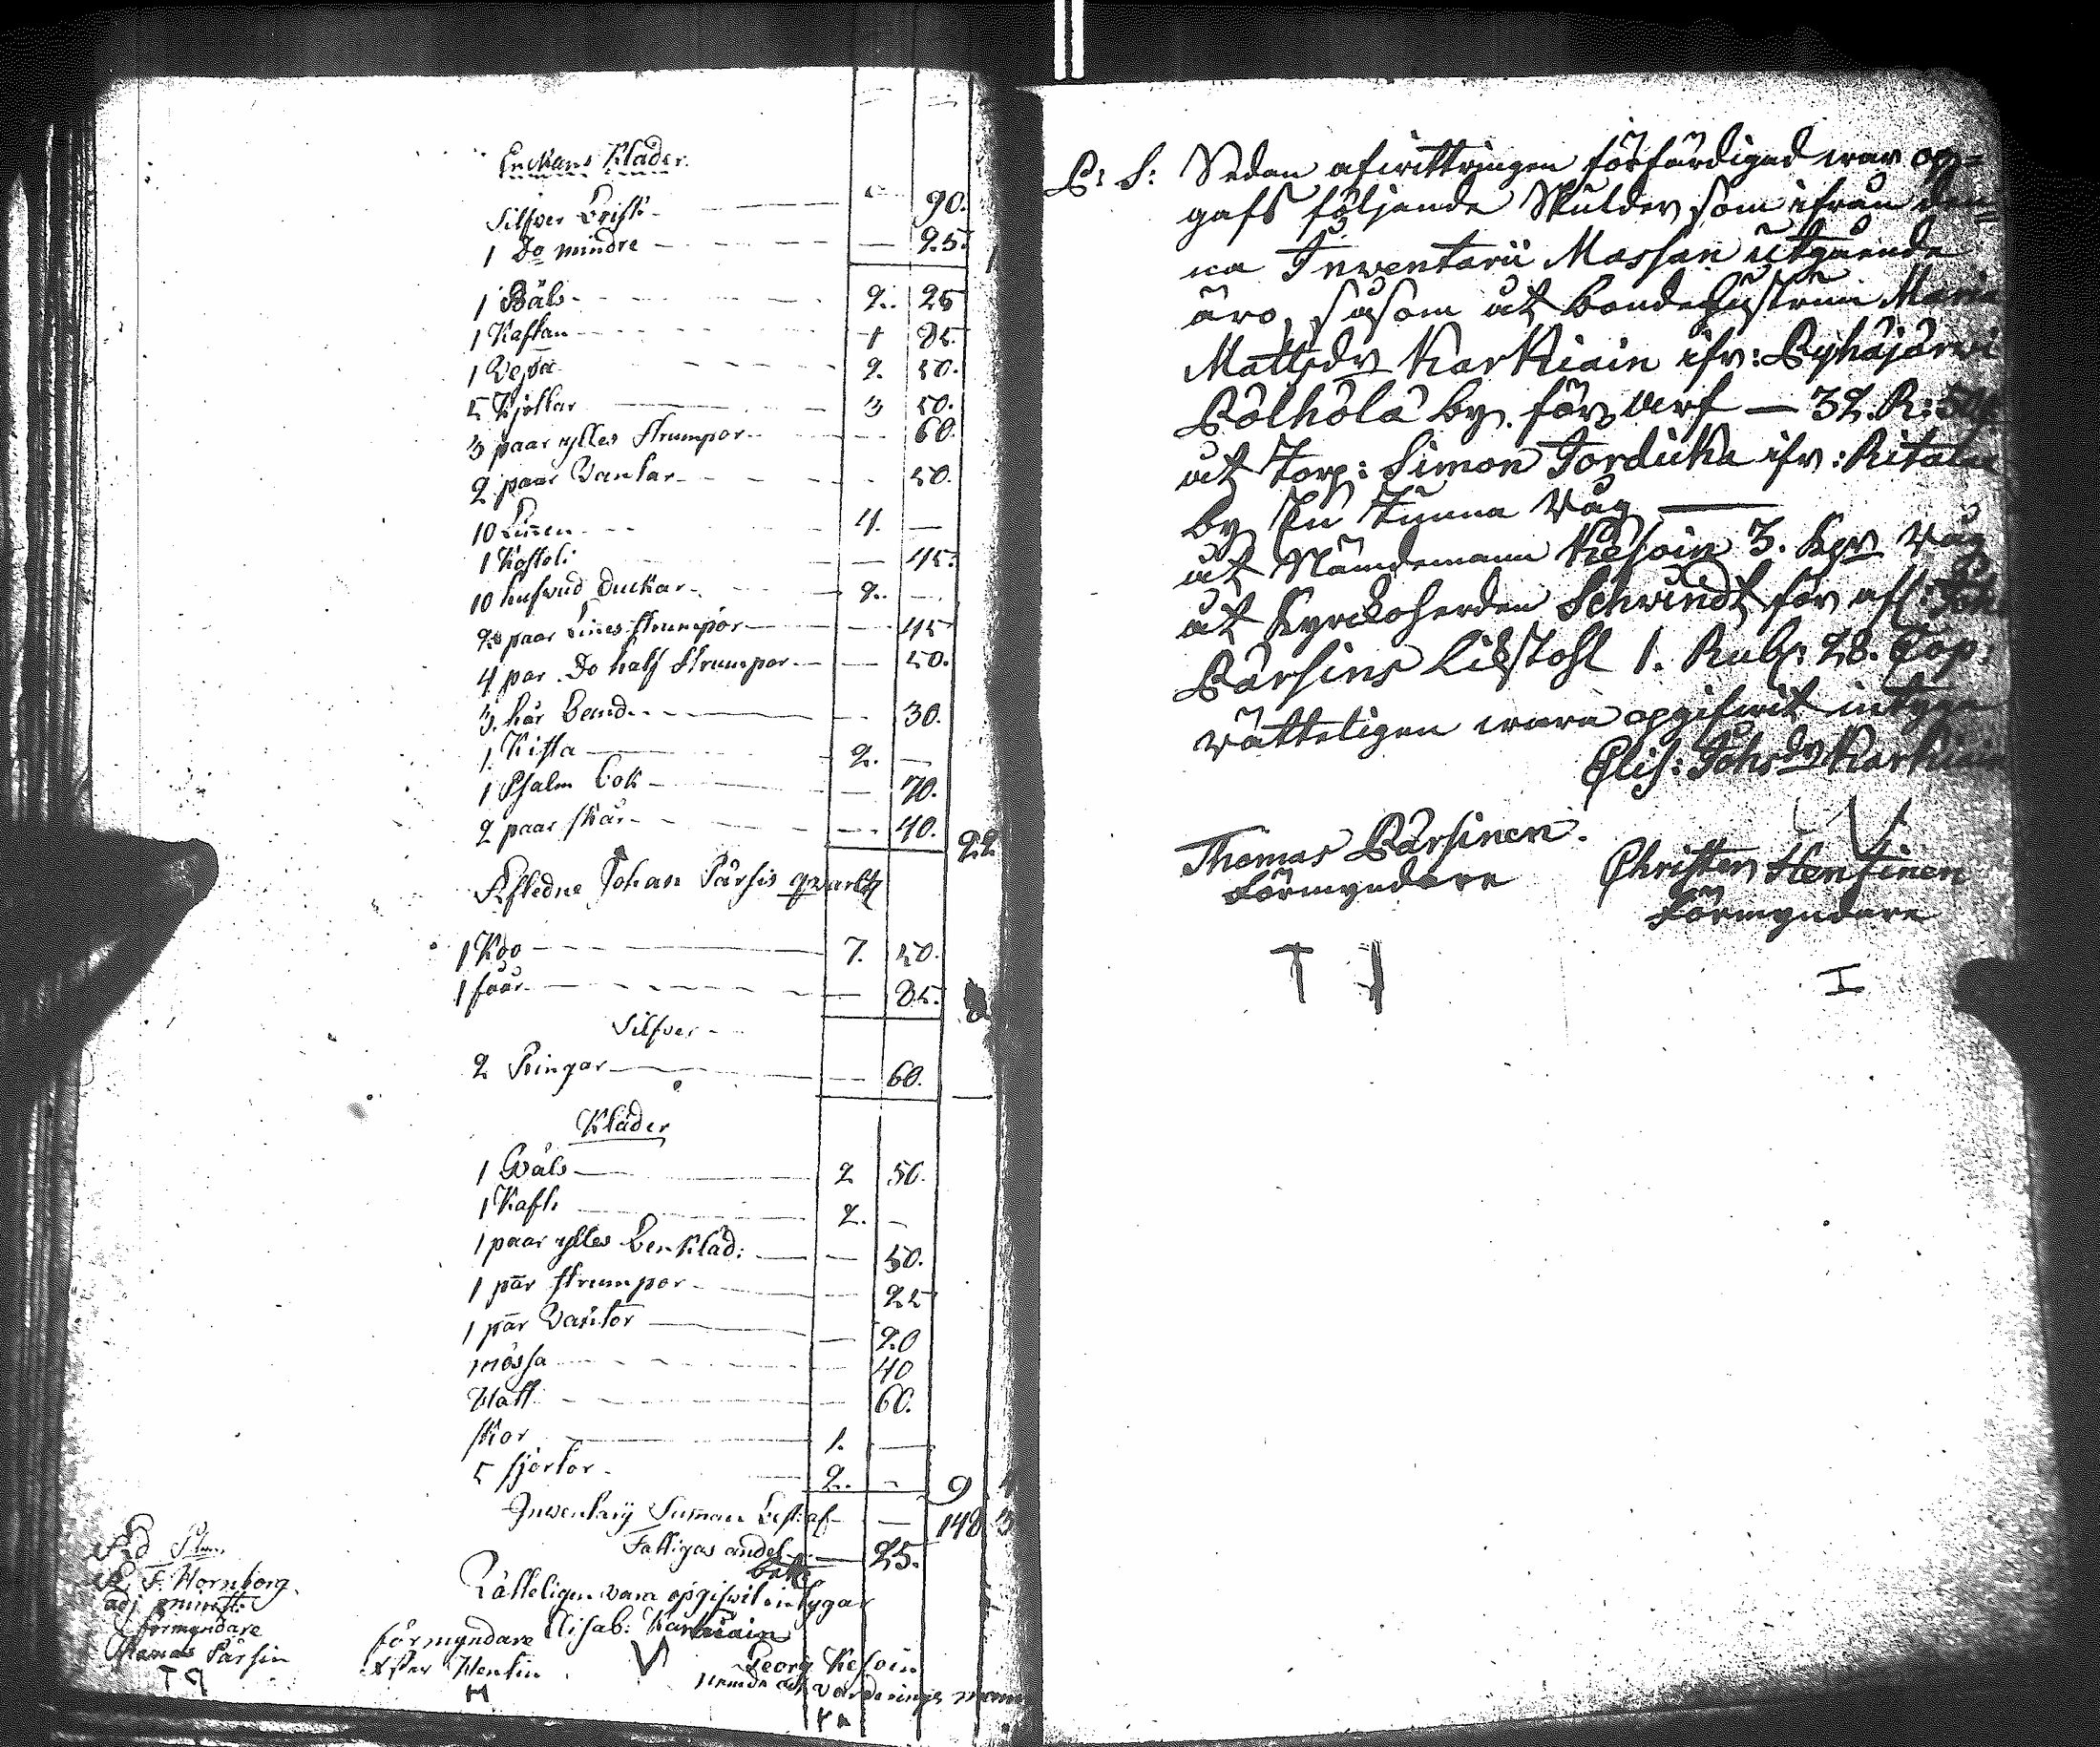 Enkans Kläder.
Silfver Brisk - 90.
1 Do mindre - 25.
1 Päls - 2. 25
1 Kaftan - 1 85.
1 - 2. 50.
5 Kjortlar - 3 50.
3 paar ylles strumpor - 60.
2 paar Vantar - 50.
10 Linnen - 4. -
1 - 45.
10 hufwud dukar - 2. -
paar Linnes strumpor - 45
4 par Do half strumpor - 50.
3 hår band - 30.
1 Kista - 2. -
1 Psalm bok - 70.
2 paar skor - 40. 22
Afledne Johan Pärsis qvarl
1 Koo - 7. 50.
1 faår - 85.
Silfver -
2 Ringar - 60.
Kläder
1 Päls - 2 50.
1 Kaft: - 2. -
1 paar ylles Benkläd: - 50.
1 pār strumpor - 25
1 pār Vantor - 20
mössa - 40
Hatt - 60.
skor - 1. -
5 sjortor - 2. - 9
Inventarij Sum̄an best: af - 148
Fattigas andel - 25.
bet:
Rätteligen vara opgifwit intygar
Elisab: Karkiain
F. Hornborg.
adj minist:
förmyndare
Thomas Pärsin
förmyndare
HenTin
Georg Kesoin
Nemde och värderings man
P: S: Sedan afwittringen förfärdigad war op=
gafs följande Skulder som ifrån den=
na Inventarii Massan utgående
äro, såsom åt bondehustrun Maria
Mattsdr Karkiain ifr: Pyhäjärwi
Pölhölä by för arf — 32. R: 50
åt Torp: Simon Tordicka ifr: Ritala
by En Tunna Råg —
åt Nämdemann Kesoin 3. Kpr Råg
åt Kyrckoherden Schwindt för afl: Joh
Pärsins Likstohl 1. Rub: 28. Cop:
Rätteligen wara opgifwit intyga
Elis: Johsdr Karkiain
Thomas Pärsinen.
Förmyndare
Christer Hentinen
Förmyndare